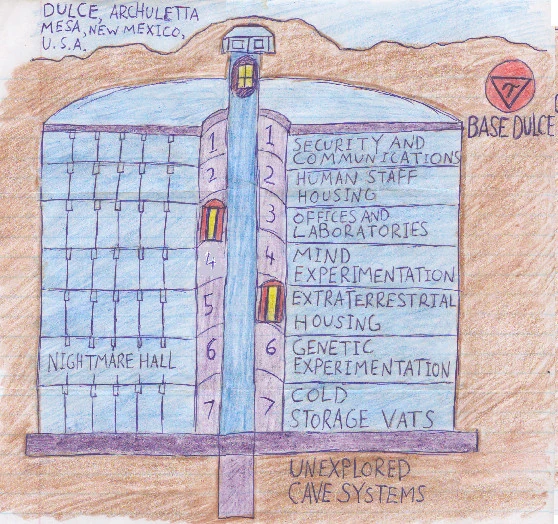 DULCE, ARCHULETTA
MESA, NEW MEXICO,
U.S.A.
BASE DULCE
1
1
SECURITY AND
COMMUNICATIONS
2
2
HUMAN STAFF
HOUSING
3
OFFICES AND
LABORATORIES
4
4
MIND
EXPERIMENTATION
5
EXTRATERRESTRIAL
HOUSING
NIGHTMARE HALL
6
6
GENETIC
EXPERIMENTATION
7
7
COLD
STORAGE VATS
UNEXPLORED
CAVE SYSTEMS